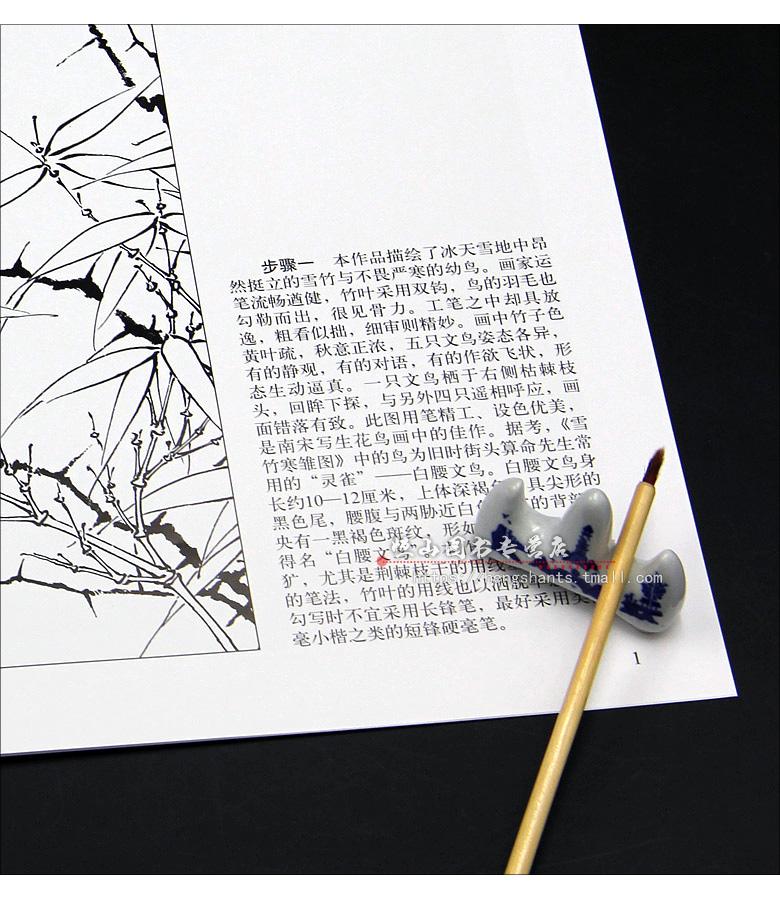 步骤一 本作品描绘了冰天雪地中昂
然挺立的雪竹与不畏严寒的幼鸟。画家运
笔流畅遒健，竹叶采用双钩，鸟的羽毛也
勾勒而出，很见骨力。工笔之中却具放
逸，粗看似拙，细审则精妙。画中竹子色
黄叶疏，秋意正浓，五只文鸟姿态各异，
有的静观，有的对语，有的作欲飞状，形
态生动逼真。一只文鸟栖于右侧枯棘枝
头，回眸下探，与另外四只遥相呼应，画
面错落有致。此图用笔精工、设色优美，
是南宋写生花鸟画中的佳作。据考，《雪
竹寒雏图》中的鸟为旧时街头算命先生常
用的“灵雀”——白腰文鸟。白腰文鸟身
长约10—12厘米，上体深褐 具尖形的
黑色尾，腰腹与两胁近白 的背部
央有一黑褐色斑纹，形如
得名“白腰文
犷，尤其是荆棘枝干的用线
的笔法，竹叶的用线也以洒脱
勾写时不宜采用长锋笔，最好采用
毫小楷之类的短锋硬毫笔。
图书专营店
https://hongshants.tmall.com
1